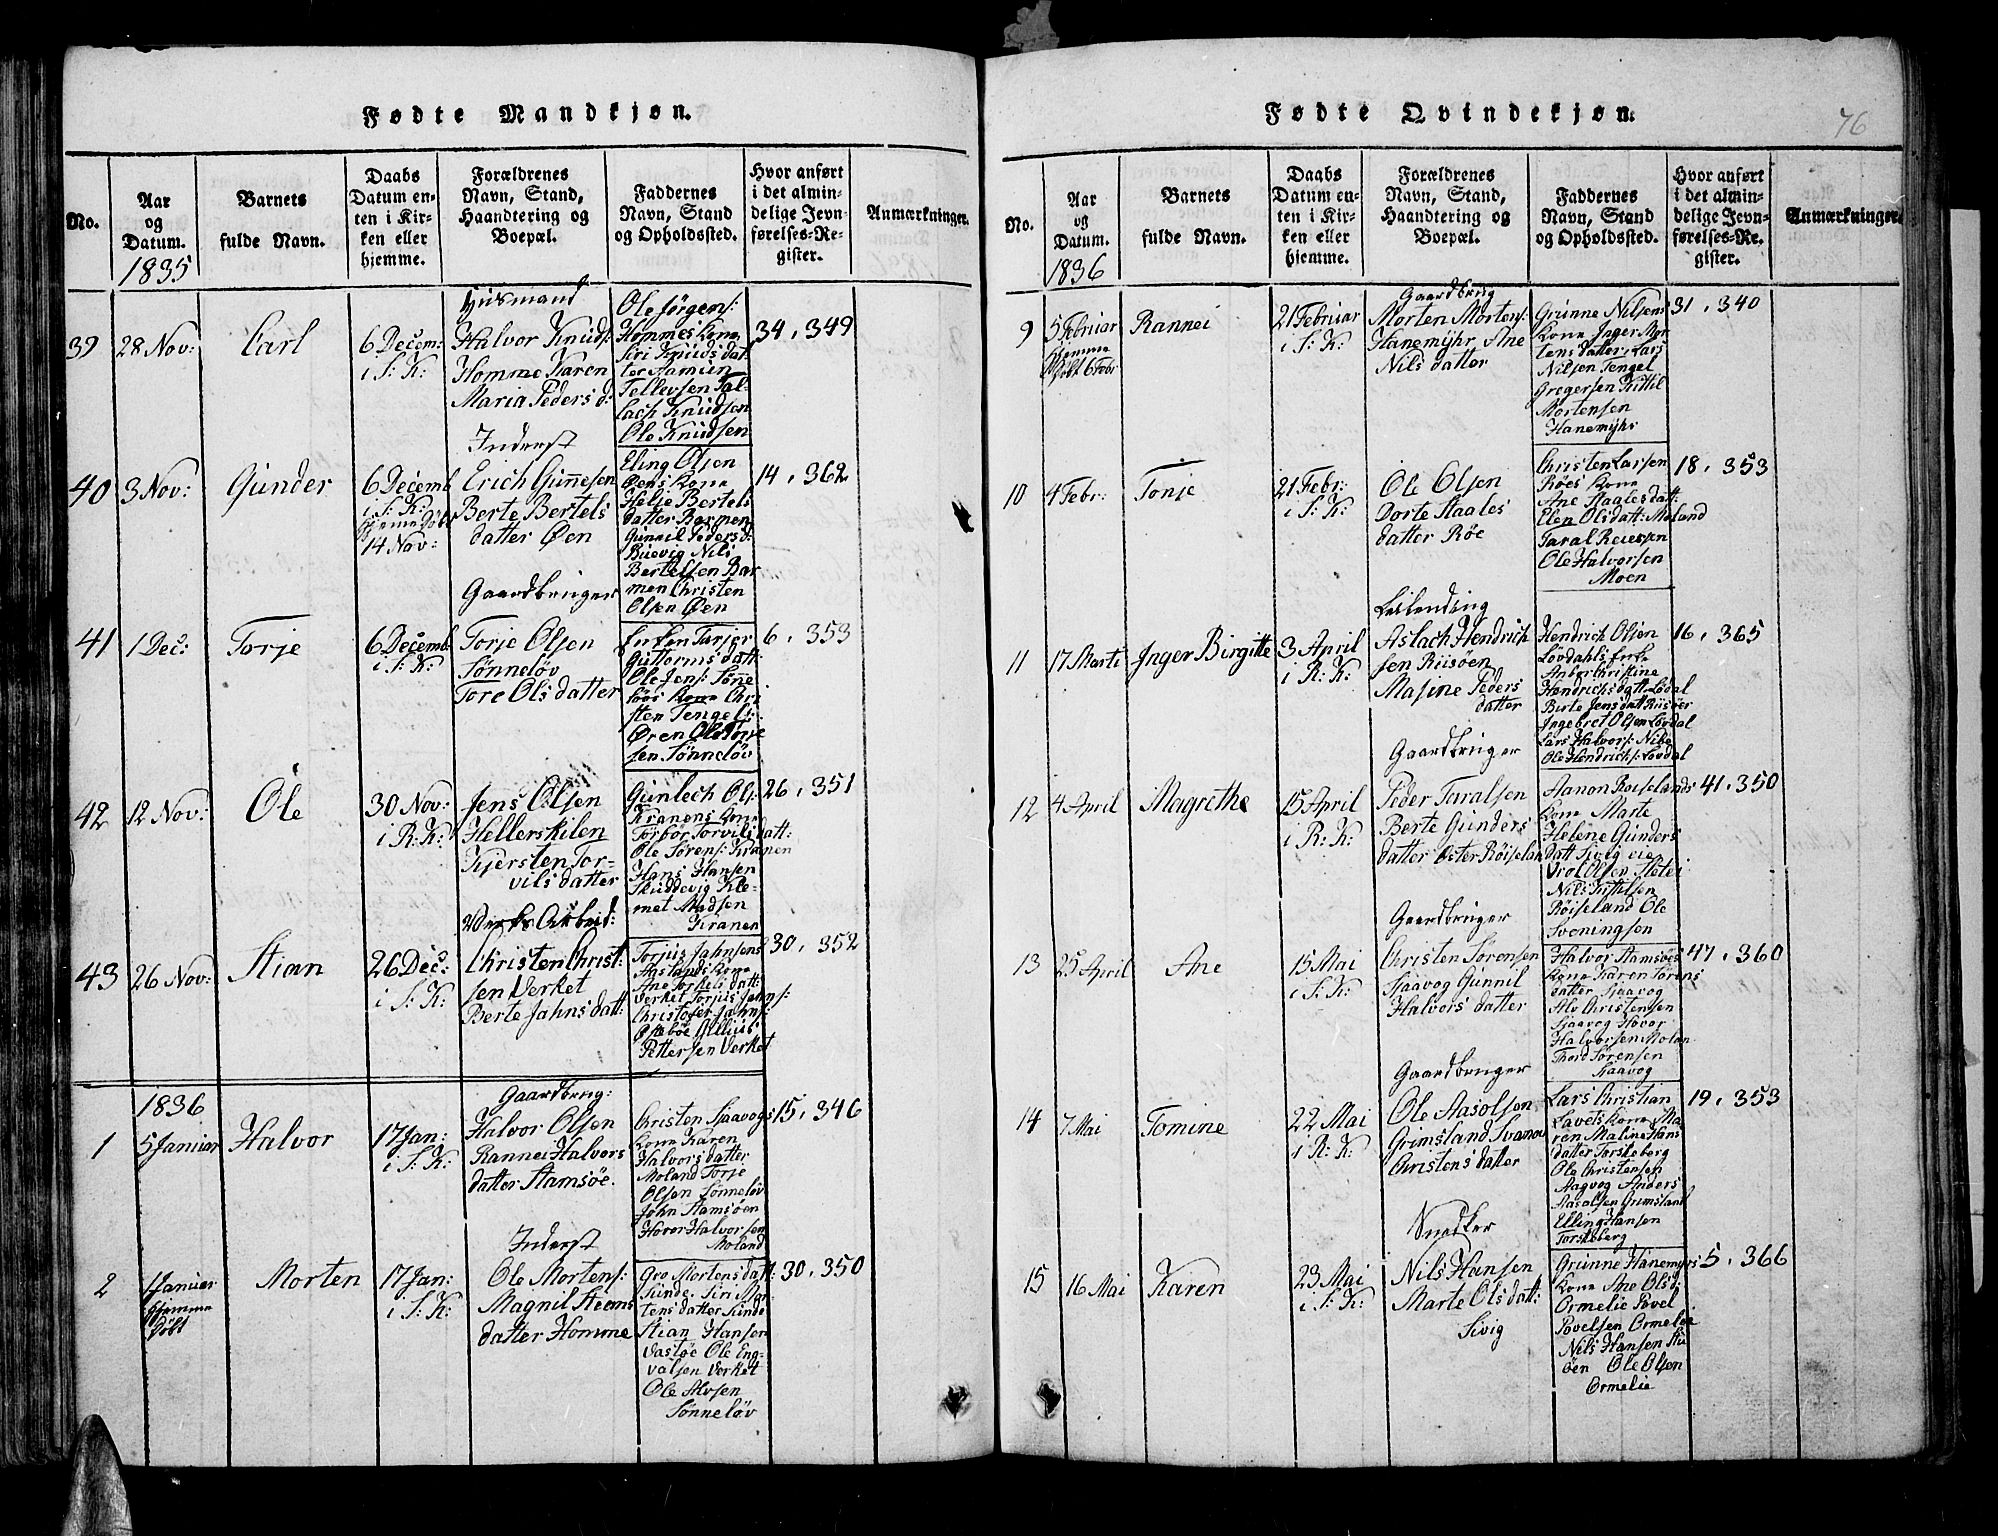 Fødte Mandkjøn.
No.
Aar
og
Datum.
1835
Barnets
fulde Navn.
Daabs
Datum en-
ten i Kir-
ken eller
hjemme.
Forældrenes
Navn, Stand,
Haandtering og
Boepæl.
Faddernes
Navn, Stand
og Opholdssted.
Hvor anført
i det almin-
delige Jevn-
førelses-Re-
gister.
Anmærkninger.
39
28 Nov:
Carl
6 Decem:
i S: K:
Huusmand
Halvor Knuds:
Homme Karen
Maria Peders d:
Ole Jørgens:
Hommes Kone
Siri Knuds dat
ter Aamun
Tellevsen Tal-
lach Knudsen
Ole Knudsen
34, 349
40
3 Nov:
Gunder
6 Decemb
i S: K:
Hjemme Døbt
14 Nov:
Inderst
Erich Gunnesen
Berte Bertels
datter Øen
Eling Olsen
Øens Kone
Helje Bertels
datter Barmen
Gunnil Peders d:
Buevig Nils
Bertelsen Bar
men Christen
Olsen Øen
14, 362
41
1 Dec:
Torje
6 Decemb
i S: K:
Gaardbruger
Torje Olsen
Sønneløv
Tore Olsdatter
Enken Tarjer
Guttorms datt:
Ole Jens: Sønne
løvs Kone Chri
sten Tengels:
Øren Ole Torje
sen Sønneløv
6, 353
42
12 Nov:
Ole
30 Nov:
i R: K:
Jens Olsen
Hellerskilen
Kjersten Tor-
vils datter
Gunlech Ols:
Kranens Kone
Torbør Torvils datt:
Ole Sørens: Kranen
Hans Hansen
Skuddevig Kle-
met Madsen
Kranen
26, 351
43
26 Nov:
Stian
26 Dec:
i S: K:
Verks Arbeid:
Christen Christ:
sen Verket
Berte Jahns datt:
Torjus Jahnsens
Aaslands Kone
Ane Torkels datt:
Verket Torjus Jahns:
Christofer Jahns:
Osebøe Ollius
Pettersen Verket
30, 352
1836
1
5 Januar
Halvor
17 Jan:
i S: K:
Gaardbrug:
Halvor Olsen
Rannei Halvors
datter Stamsøe.
Christen Sjaavogs
Kone Karen
Halvors datter
Moland Torje
Olsen Sønneløv
John Stamsøen
Hover Halvorsen
Moland
15, 346
2
4 Januar
Hjemme
Døbt
Morten
17 Jan:
i S: K:
Inderst
Ole Mortens:
Magnil Steens
datter Homme
Gro Mortens datt:
Sunde. Siri Mor
tens datter Sunde
Stian Hansen
Vastøe Ole Eng-
valsen Verket
Ole Alvsen
Sønneløv
30, 350
Fødte Qvindekjøn.
76
No.
Aar
og
Datum.
1836
Barnets
fulde Navn.
Daabs
Datum en-
ten i Kir-
ken eller
hjemme.
Forældrenes
Navn, Stand,
Haandtering og
Boepæl.
Faddernes
Navn, Stand
og Opholdssted.
Hvor anført
i det almin-
delige Jevn-
førelses-Re-
gister.
Anmærkninger.
9
5 Februar
Hjemme
Døbt 6 Febr
Rannei
21 Februar
i S: K:
Gaardbrug
Morten Mortens:
Hanemyhr Ane
Nils datter
Grunne Nilsens
Kone Inger Mor
tens datter, Lars
Nilsen Tengel
Gregersen Kittil
Mortensen
Hanemyhr
31, 340
10
4 Febr:
Tonje
21 Febr:
i S: K:
Ole Olsen
Dorte Staales
datter Røe
Christen Larsen
Røes Kone
Ane Staales datt:
Elen Ols datt: Moland
Taral Reiersen
Ole Halvorsen
Moen
18, 353
11
17 Marti
Inger Birgitte
3 April
i R: K:
Leilending
Aslach Hendrich
sen Riisøen
Masine Peders
datter
Hendrich Olsen
Løvdahls Enke
Anbor Christine
Hendrichs datt: Lødal
Birte Jens datt Riisøer
Ingebret Olsen Løvdal
Lars Halvors: Nibe
Ole Hendrichs: Løvdal
16, 365
12
4 April
Magrethe
15 April
i R: K:
Gaardbruger
Peder Taralsen
Berte Gunders
datter Oster Røiselan
Aanon Røiselands
Kone Marte
Helene Gunders
datt Sivig eie
Vrol Olsen Stølei
Nils Kittilsen
Røiseland Ole
Svenningsen
41, 350
13
25 April
Ane
15 Mai
i S: K:
Gaardbruger
Christen Sørensen
Sjaavog Gunnil
Halvors datter
Halvor Stamsøes
Kone Karen Sørens
datter Sjaavog
Alv Christensen
Sjaavog Hovor
Halvorsen Molan
Thord Sørensen
Saavog
47, 360
14
7 Mai
Tomine
22 Mai
i R: K:
Gaardbruger
Ole Aasolsen
Grimsland Svanou
Christens datter
Lars Christian
Lavets Kone Ma
ren Maline Hans
datter Torskeberg
Ole Christensen
Aagvog Anders
Aasolsen Grimsland
Elling Hansen
Torskeberg
19, 353
15
16 Mai
Karen
23 Mai
i S: K:
Snedker
Nils Hansen
Marte Ols datt:
Sivig
Grunne Hanemyrs
Kone Ane Ols d:
Ormelie Povel
Povelsen Ormelie
Nils Hansen Stu
øen Ole Olsen
Ormelie
5, 366